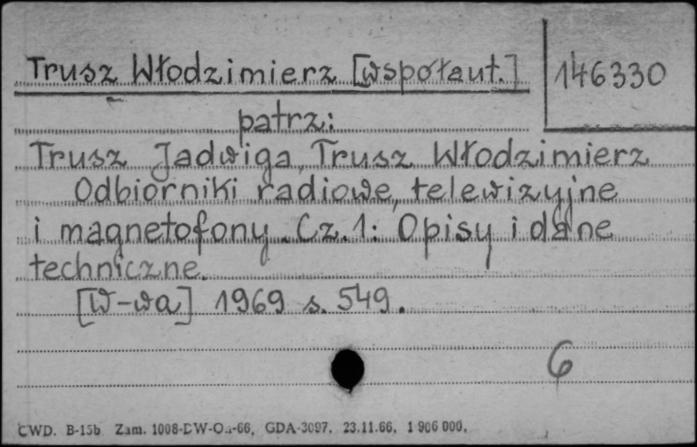 Trusz Włodzimierz [współaut.] 146330
patrz:
Trusz Jadwiga, Trusz Włodzimierz
Odbiorniki radiowe, telewizyjne
i magnetofony. Cz. 1: Opisy i dane
techniczne.
[W-wa] 1969 s. 549.
6
CWD. B-15b Zam. 1008-DW-Oa-66, GDA-3097, 23.11.66, 1 906 000,